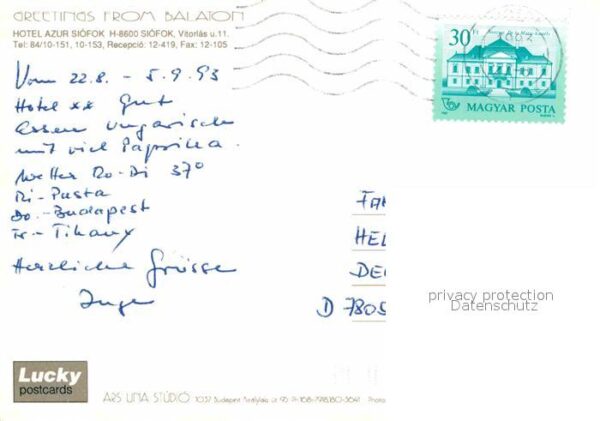 GREETINGS FROM BALATON
HOTEL AZUR SIÓFOK H-8600 SIÓFOK, Vitorlás u.11.
Tel: 84/10-151, 10-153, Recepció: 12-419, Fax: 12-105
30 Ft
MAGYAR POSTA
Vom 22.8. - 5.9.93
Hotel xx Gut
Essen Ungarisch
mit viel Paprika.
Wetter Do-Di 37°
Di-Pusta
Do.-Budapest
Fr-Tihany
Herzliche Grüsse
Inge
FA
HEL
DE
D 7805
privacy protection
Datenschutz
Lucky
postcards
ARS UNA STÚDIÓ 1037 Budapest